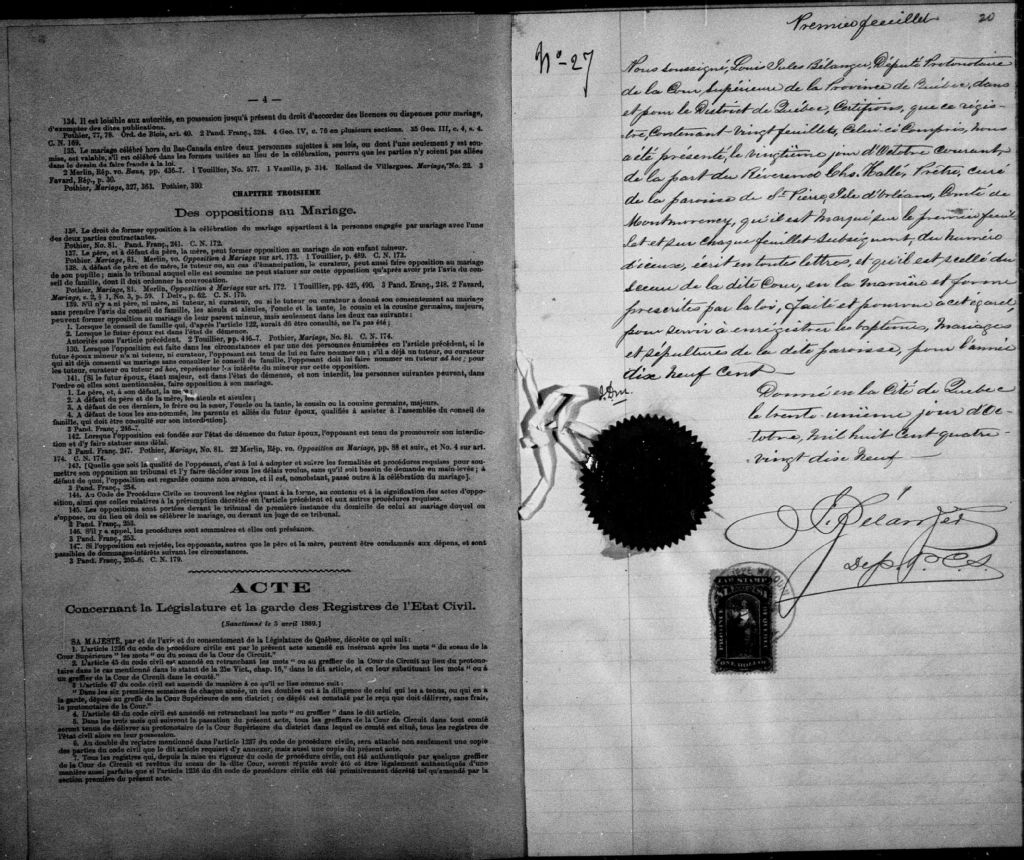 — 4 —
134. Il est loisible aux autorités, en possession jusqu'à présent du droit d'accorder des licences ou dispenses pour mariage,
d'exempter des dites publications.
Pothier, 77, 78. Ord. de Blois, art. 40. 2 Pand. Franç., 324. 4 Geo. IV, c. 76 en plusieurs sections. 35 Geo. III, c. 4, s. 4.
C. N. 169.
135. Le mariage célébré hors du Bas-Canada entre deux personnes sujettes à ses lois, ou dont l'une seulement y est sou-
mise, est valable, s'il est célébré dans les formes usitées au lieu de la célébration, pourvu que les parties n'y soient pas allées
dans le dessin de faire fraude à la loi.
2 Merlin, Rép. vo. Bans, pp. 435-7. 1 Touillier, No. 577. 1 Vazeille, p. 314. Rolland de Villargues. Mariage, No. 22. 3
Favard, Rép., p. 30.
Pothier, Mariage, 327, 363. Pothier, 390.
CHAPITRE TROISIEME
Des oppositions au Mariage.
136. Le droit de former opposition à la célébration du mariage appartient à la personne engagée par mariage avec l'une
des deux parties contractantes.
Pothier, No. 81. Pand. Franç., 241. C. N. 172.
137. Le père, et à défaut du père, la mère, peut former opposition au mariage de son enfant mineur.
Pothier, Mariage, 81. Merlin, vo. Opposition à Mariage sur art. 173. 1 Touillier, p. 489. C. N. 173.
138. A défaut de père et de mère, le tuteur, ou, au cas d'émancipation, le curateur, peut aussi faire opposition au mariage
de son pupille; mais le tribunal auquel elle est soumise ne peut statuer sur cette opposition qu'après avoir pris l'avis du con-
seil de famille, dont il doit ordonner la convocation.
Pothier, Mariage, 81. Merlin, Opposition à Mariage sur art. 172. 1 Touillier, pp. 425, 490. 3 Pand. Franç., 248. 2 Favard,
Mariage, c. 2, § 1, No. 3, p. 59. 1 Delv., p. 62. C. N. 175.
139. S'il n'y a ni père, ni mère, ni tuteur, ni curateur, ou si le tuteur ou curateur a donné son consentement au mariage
sans prendre l'avis du conseil de famille, les aïeuls et aïeules, l'oncle et la tante, le cousin et la cousine germains, majeurs,
peuvent former opposition au mariage de leur parent mineur, mais seulement dans les deux cas suivants:
1. Lorsque le conseil de famille qui, d'après l'article 122, aurait dû être consulté, ne l'a pas été;
2. Lorsque le futur époux est dans l'état de démence.
Autorités sous l'article précédent. 2 Touillier, pp. 446-7. Pothier, Mariage, No. 81. C. N. 174.
130. Lorsque l'opposition est faite dans les circonstances et par une des personnes énumérées en l'article précédent, si le
futur époux mineur n'a ni tuteur, ni curateur, l'opposant est tenu de lui en faire nommer un; s'il a déjà un tuteur, ou curateur
qui ait déjà consenti au mariage sans consulter le conseil de famille, l'opposant doit lui faire nommer un tuteur ad hoc; pour
les tuteur, curateur ou tuteur ad hoc, représenter les intérêts du mineur sur cette opposition.
141. [Si le futur époux, étant majeur, est dans l'état de démence, et non interdit, les personnes suivantes peuvent, dans
l'ordre où elles sont mentionnées, faire opposition à son mariage.
1. Le père, et, à son défaut, la mère;
2. A défaut du père et de la mère, les aïeuls et aïeules;
3. A défaut de ces derniers, le frère ou la sœur, l'oncle ou la tante, le cousin ou la cousine germains, majeurs,
4. A défaut de tous les sus-nommés, les parents et alliés du futur époux, qualifiés à assister à l'assemblée du conseil de
famille, qui doit être consulté sur son interdiction].
3 Pand. Franç., 246-7.
142. Lorsque l'opposition est fondée sur l'état de démence du futur époux, l'opposant est tenu de promouvoir son interdic-
tion et d'y faire statuer sans délai.
3 Pand. Franç. 247. Pothier, Mariage, No. 81. 22 Merlin, Rép. vo. Opposition au Mariage, pp. 88 et suiv., et No. 4 sur art.
174. C. N. 174.
143. [Quelque que soit la qualité de l'opposant, c'est à lui à adopter et suivre les formalités et procédures requises pour sou-
mettre son opposition au tribunal et l'y faire décider sous les délais voulus, sans qu'il soit besoin de demande en main-levée; à
défaut de quoi, l'opposition est regardée comme non avenue, et il est, nonobstant, passé outre à la célébration du mariage].
3 Pand. Franç., 254.
144. Au Code de Procédure Civile se trouvent les règles quant à la forme, au contenu et à la signification des actes d'oppo-
sition, ainsi que celles relatives à la péremption décrétée en l'article précédent et aux autres procédures requises.
145. Les oppositions sont portées devant le tribunal de première instance du domicile de celui au mariage duquel on
s'oppose, ou du lieu où doit se célébrer le mariage, ou devant un juge de ce tribunal.
3 Pand. Franç., 253.
146. S'il y a appel, les procédures sont sommaires et elles ont préséance.
3 Pand. Franç., 253.
147. Si l'opposition est rejetée, les opposants, autres que le père et la mère, peuvent être condamnés aux dépens, et sont
passibles de dommages-intérêts suivant les circonstances.
3 Pand. Franç., 255-6. C. N. 179.
ACTE
Concernant la Législature et la garde des Registres de l'Etat Civil.
[Sanctionné le 5 avril 1869.]
SA MAJESTÉ, par et de l'avis et du consentement de la Législature de Québec, décrète ce qui suit:
1. L'article 1236 du code de procédure civile est par le présent acte amendé en insérant après les mots "du sceau de la
Cour Supérieure" les mots "ou du sceau de la Cour de Circuit."
2. L'article 45 du code civil est amendé en retranchant les mots "ou au greffier de la Cour de Circuit au lieu du protono-
taire dans le cas mentionné dans le statut de la 25e Vict., chap. 16," dans le dit article, et en leur substituant les mots "ou à
un greffier de la Cour de Circuit dans le comté."
3 L'article 47 du code civil est amendé de manière à ce qu'il se lise comme suit:
"Dans les six premières semaines de chaque année, un des doubles est à la diligence de celui qui les a tenus, ou qui en a
la garde, déposé au greffe de la Cour Supérieure de son district; ce dépôt est constaté par le reçu que doit délivrer, sans frais,
le protonotaire de la Cour."
4. L'article 48 du code civil est amendé en retranchant les mots "ou greffier" dans le dit article.
5. Dans les trois mois qui suivront la passation du présent acte, tous les greffiers de la Cour de Circuit dans tout comté
seront tenus de délivrer au protonotaire de la Cour Supérieure du district dans lequel ce comté est situé, tous les registres de
l'état civil alors en leur possession.
6. Au double du registre mentionné dans l'article 1237 du code de procédure civile, sera attaché non seulement une copie
des parties du code civil que le dit article requiert d'y annexer, mais aussi une copie du présent acte.
7. Tous les registres qui, depuis la mise en vigueur du code de procédure civile, ont été authentiqués par quelque greffier
de la Cour de Circuit et revêtus du sceau de la dite Cour, seront réputés avoir été et être légalement authentiqués d'une
manière aussi parfaite que si l'article 1236 du dit code de procédure civile eût été primitivement décrété tel qu'amendé par la
section première du présent acte.
Premier feuillet
20
No - 27
Nous soussigné, Louis Jules Bélanger, Député Protonotaire
de la Cour Supérieure de la Province de Québec, dans
et pour le District de Québec, Certifions, que ce régis-
tre, Contenant Vingt feuillets, Celui-ci Compris, nous
a été présenté, le vingtième jour d'Octobre Courant,
de la part du Révérend Chs. Hallé, Prêtre, curé
de la paroisse de St Pierre, Isle d'Orléans, Comté de
Montmorency, qu'il est marqué sur le premier feuil-
let et sur chaque feuillet subséquent, du numéro
d'iceux, écrit en toutes lettres, et qu'il est scellé du
sceau de la dite Cour, en la manière et forme
prescrites par la loi, faite et pourvue à cet égard,
pour servir à enregistrer les baptêmes, Mariages
et sépultures de la dite paroisse, pour l'année
dix neuf cent
Donné en la Cité de Québec
le trente-unième jour d'Oc-
tobre, Mil huit Cent quatre-
vingt dix neuf
Bélanger
Dep. P. C. S.
LAW STAMP
PROVINCE OF QUEBEC
ONE DOLLAR